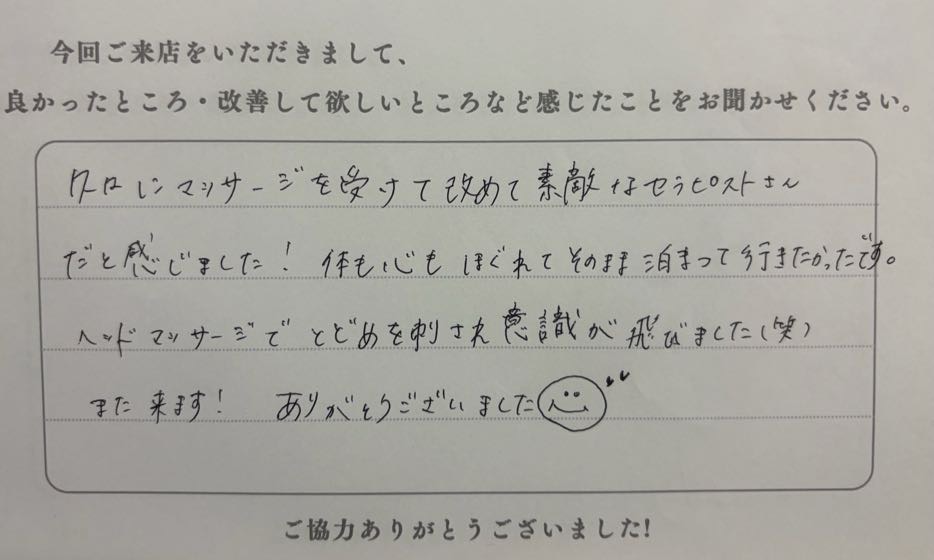 今回ご来店をいただきまして、
良かったところ・改善して欲しいところなど感じたことをお聞かせください。
マッサージを受けて改めて素敵なセラピストさん
だと感じました! 体も心もほぐれてそのまま泊まって行きたかったです。
ヘッドマッサージでとどめを刺され意識が飛びました(笑)
また来ます! ありがとうございました
ご協力ありがとうございました!